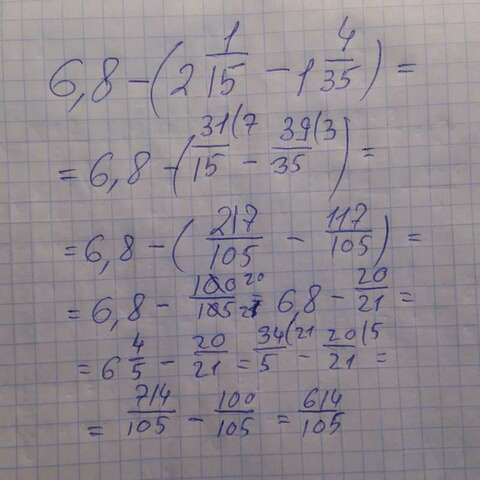 6,8 - (2 1/15 - 1 4/35) =
= 6,8 - (31(7/15 - 39(3/35) =
= 6,8 - (217/105 - 117/105) =
= 6,8 - 100 20/105 21 = 6,8 - 20/21 =
= 6 4/5 - 20/21 = 34(21/5 - 20(5/21 =
= 714/105 - 100/105 = 614/105